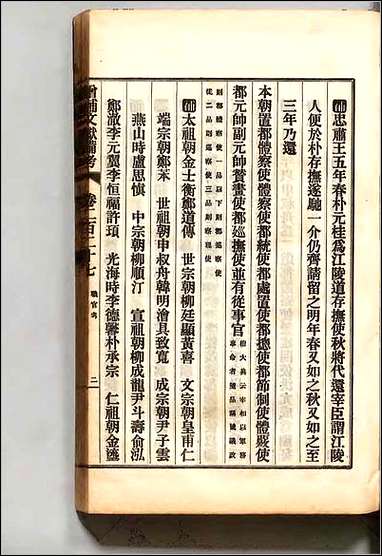 補 忠肅王五年春朴元桂爲江陵道存撫使秋將代還宰臣謂江陵
人便於朴存撫遂馳一介仍齊請留之明年春又如之秋又如之至
三年乃還
本朝置都體察使體察使都統使都處置使都摠使都節制使體覈使
都元帥副元帥贊畫使都巡撫使並有從事官
大典云宰相以軍務
奉命者隨品稱號議政
則都體察使一品以下則都巡察使
從二品則巡察使三品則察理使
補 太祖朝金士衡鄭道傳 世宗朝柳廷顯黃喜 文宗朝皇甫仁
端宗朝鄭苯 世祖朝申叔舟韓明澮具致寬 成宗朝尹子雲
燕山時盧思愼 中宗朝柳順汀 宣祖朝柳成龍尹斗壽兪泓
鄭澈李元翼李恒福許頊 光海時李德馨朴承宗 仁祖朝金瑬
增補文獻備考 卷二百二十七 職官考 三